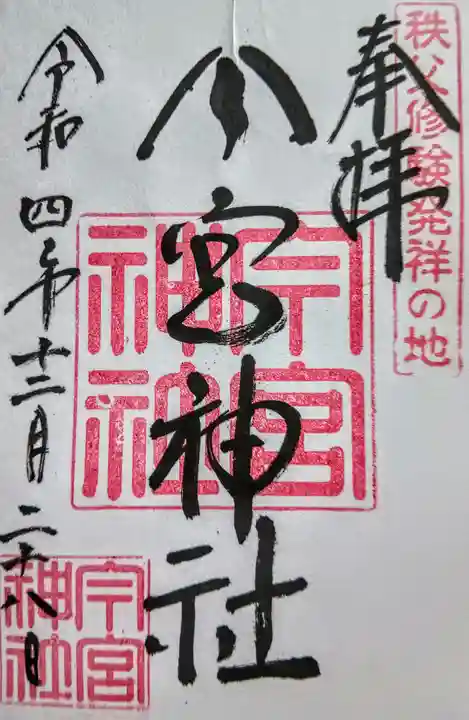 秩父修験発祥の地
奉拝
今宮神社
今宮神社
令和四年十二月二十八日
今宮神社